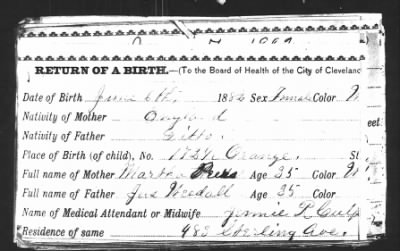 RETURN OF A BIRTH.—(To the Board of Health of the City of Cleveland
Date of Birth June 6th, 1886 Sex Female Color W
Nativity of Mother England
Nativity of Father Ditto
Place of Birth (of child), No. Orange, St
Full name of Mother Martha Age 35 Color W
Full name of Father Jas Age 35 Color
Name of Medical Attendant or Midwife Jennie P. Culp
Residence of same 483 Sterling Ave.
eet